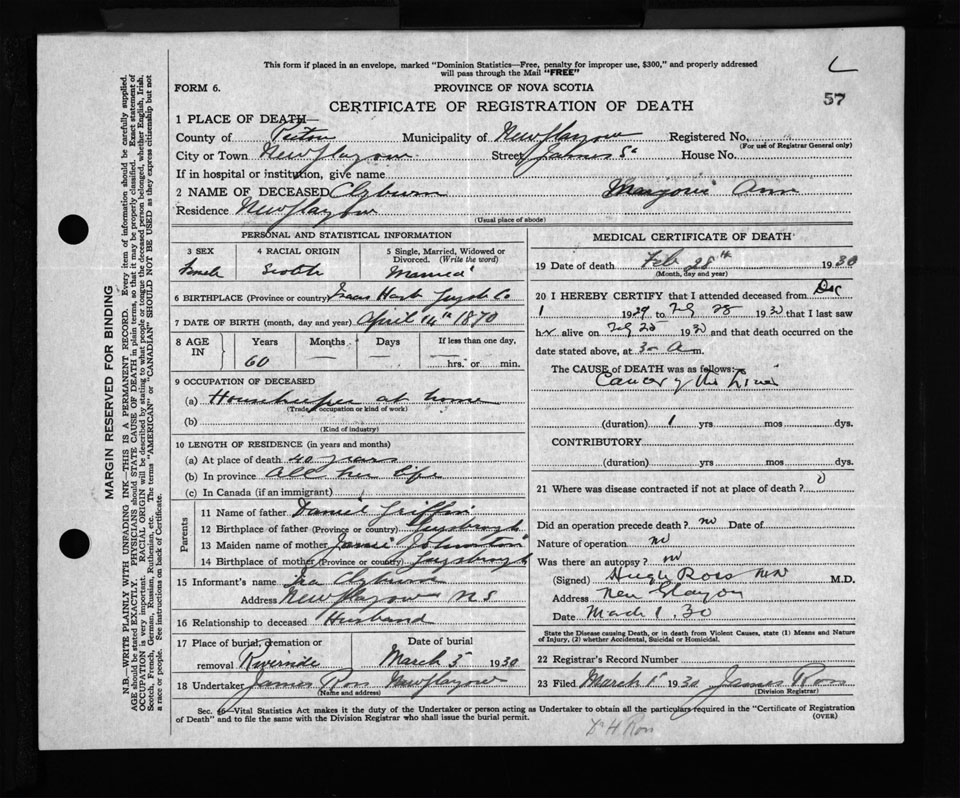 This form if placed in an envelope, marked "Dominion Statistics—Free, penalty for improper use, $300," and properly addressed
will pass through the Mail "FREE"
FORM 6.
PROVINCE OF NOVA SCOTIA
57
CERTIFICATE OF REGISTRATION OF DEATH
1 PLACE OF DEATH—
County of Pictou Municipality of New Glasgow Registered No.
(For use of Registrar General only)
City or Town New Glasgow Street James St House No.
If in hospital or institution, give name
2 NAME OF DECEASED Clyburn Marjorie Ann
Residence New Glasgow
(Usual place of abode)
PERSONAL AND STATISTICAL INFORMATION
3 SEX 4 RACIAL ORIGIN 5 Single, Married, Widowed or Divorced. (Write the word)
Female Scotch Married
6 BIRTHPLACE (Province or country) Isaacs Harb Guysb Co
7 DATE OF BIRTH (month, day and year) April 14th 1870
8 AGE IN Years Months Days If less than one day,
60 — — hrs. or min.
9 OCCUPATION OF DECEASED
(a) Housekeeper at home
(Trade, occupation or kind of work)
(b)
(Kind of industry)
10 LENGTH OF RESIDENCE (in years and months)
(a) At place of death 40 years
(b) In province All her life
(c) In Canada (if an immigrant)
Parents
11 Name of father Daniel Griffin
12 Birthplace of father (Province or country) Guysbrogh
13 Maiden name of mother Janie Johnston
14 Birthplace of mother (Province or country) Guysbrogh
15 Informant's name Ira Clyburn
Address New Glasgow N S
16 Relationship to deceased Husband
17 Place of burial, cremation or Date of burial
removal Riverside March 3 1930
18 Undertaker James Ross New Glasgow
(Name and address)
MEDICAL CERTIFICATE OF DEATH
19 Date of death Feb 28th 1930
(Month, day and year)
20 I HEREBY CERTIFY that I attended deceased from Dec
1 1929 to Feb 28 1930 that I last saw
her alive on Feb 25 1930 and that death occurred on the
date stated above, at 3- A m.
The CAUSE of DEATH was as follows:
Cancer of the Liver
(duration) 1 yrs mos dys.
CONTRIBUTORY
(duration) yrs mos dys.
21 Where was disease contracted if not at place of death?
Did an operation precede death? no Date of
Nature of operation no
Was there an autopsy? no
(Signed) Hugh Ross MD M.D.
Address New Glasgow
Date March 1. 30
State the Disease causing Death, or in death from Violent Causes, state (1) Means and Nature
of Injury, (2) whether Accidental, Suicidal or Homicidal.
22 Registrar's Record Number
23 Filed March 1st 1930 James Ross
(Division Registrar)
Sec. 46—Vital Statistics Act makes it the duty of the Undertaker or person acting as Undertaker to obtain all the particulars required in the "Certificate of Registration
of Death" and to file the same with the Division Registrar who shall issue the burial permit. (OVER)
Dr H Ross
MARGIN RESERVED FOR BINDING
N.B.—WRITE PLAINLY WITH UNFADING INK—THIS IS A PERMANENT RECORD. Every item of information should be carefully supplied.
AGE should be stated EXACTLY. PHYSICIANS should STATE CAUSE OF DEATH in plain terms, so that it may be properly classified. Exact statement of
OCCUPATION is very important. RACIAL ORIGIN will be described by stating to what people or tongue the deceased person belonged, whether English, Irish,
Scotch, French, German, Russian, Ruthenian, etc. The terms "AMERICAN" or "CANADIAN" SHOULD NOT BE USED as they express citizenship but not
a race or people. See instructions on back of Certificate.